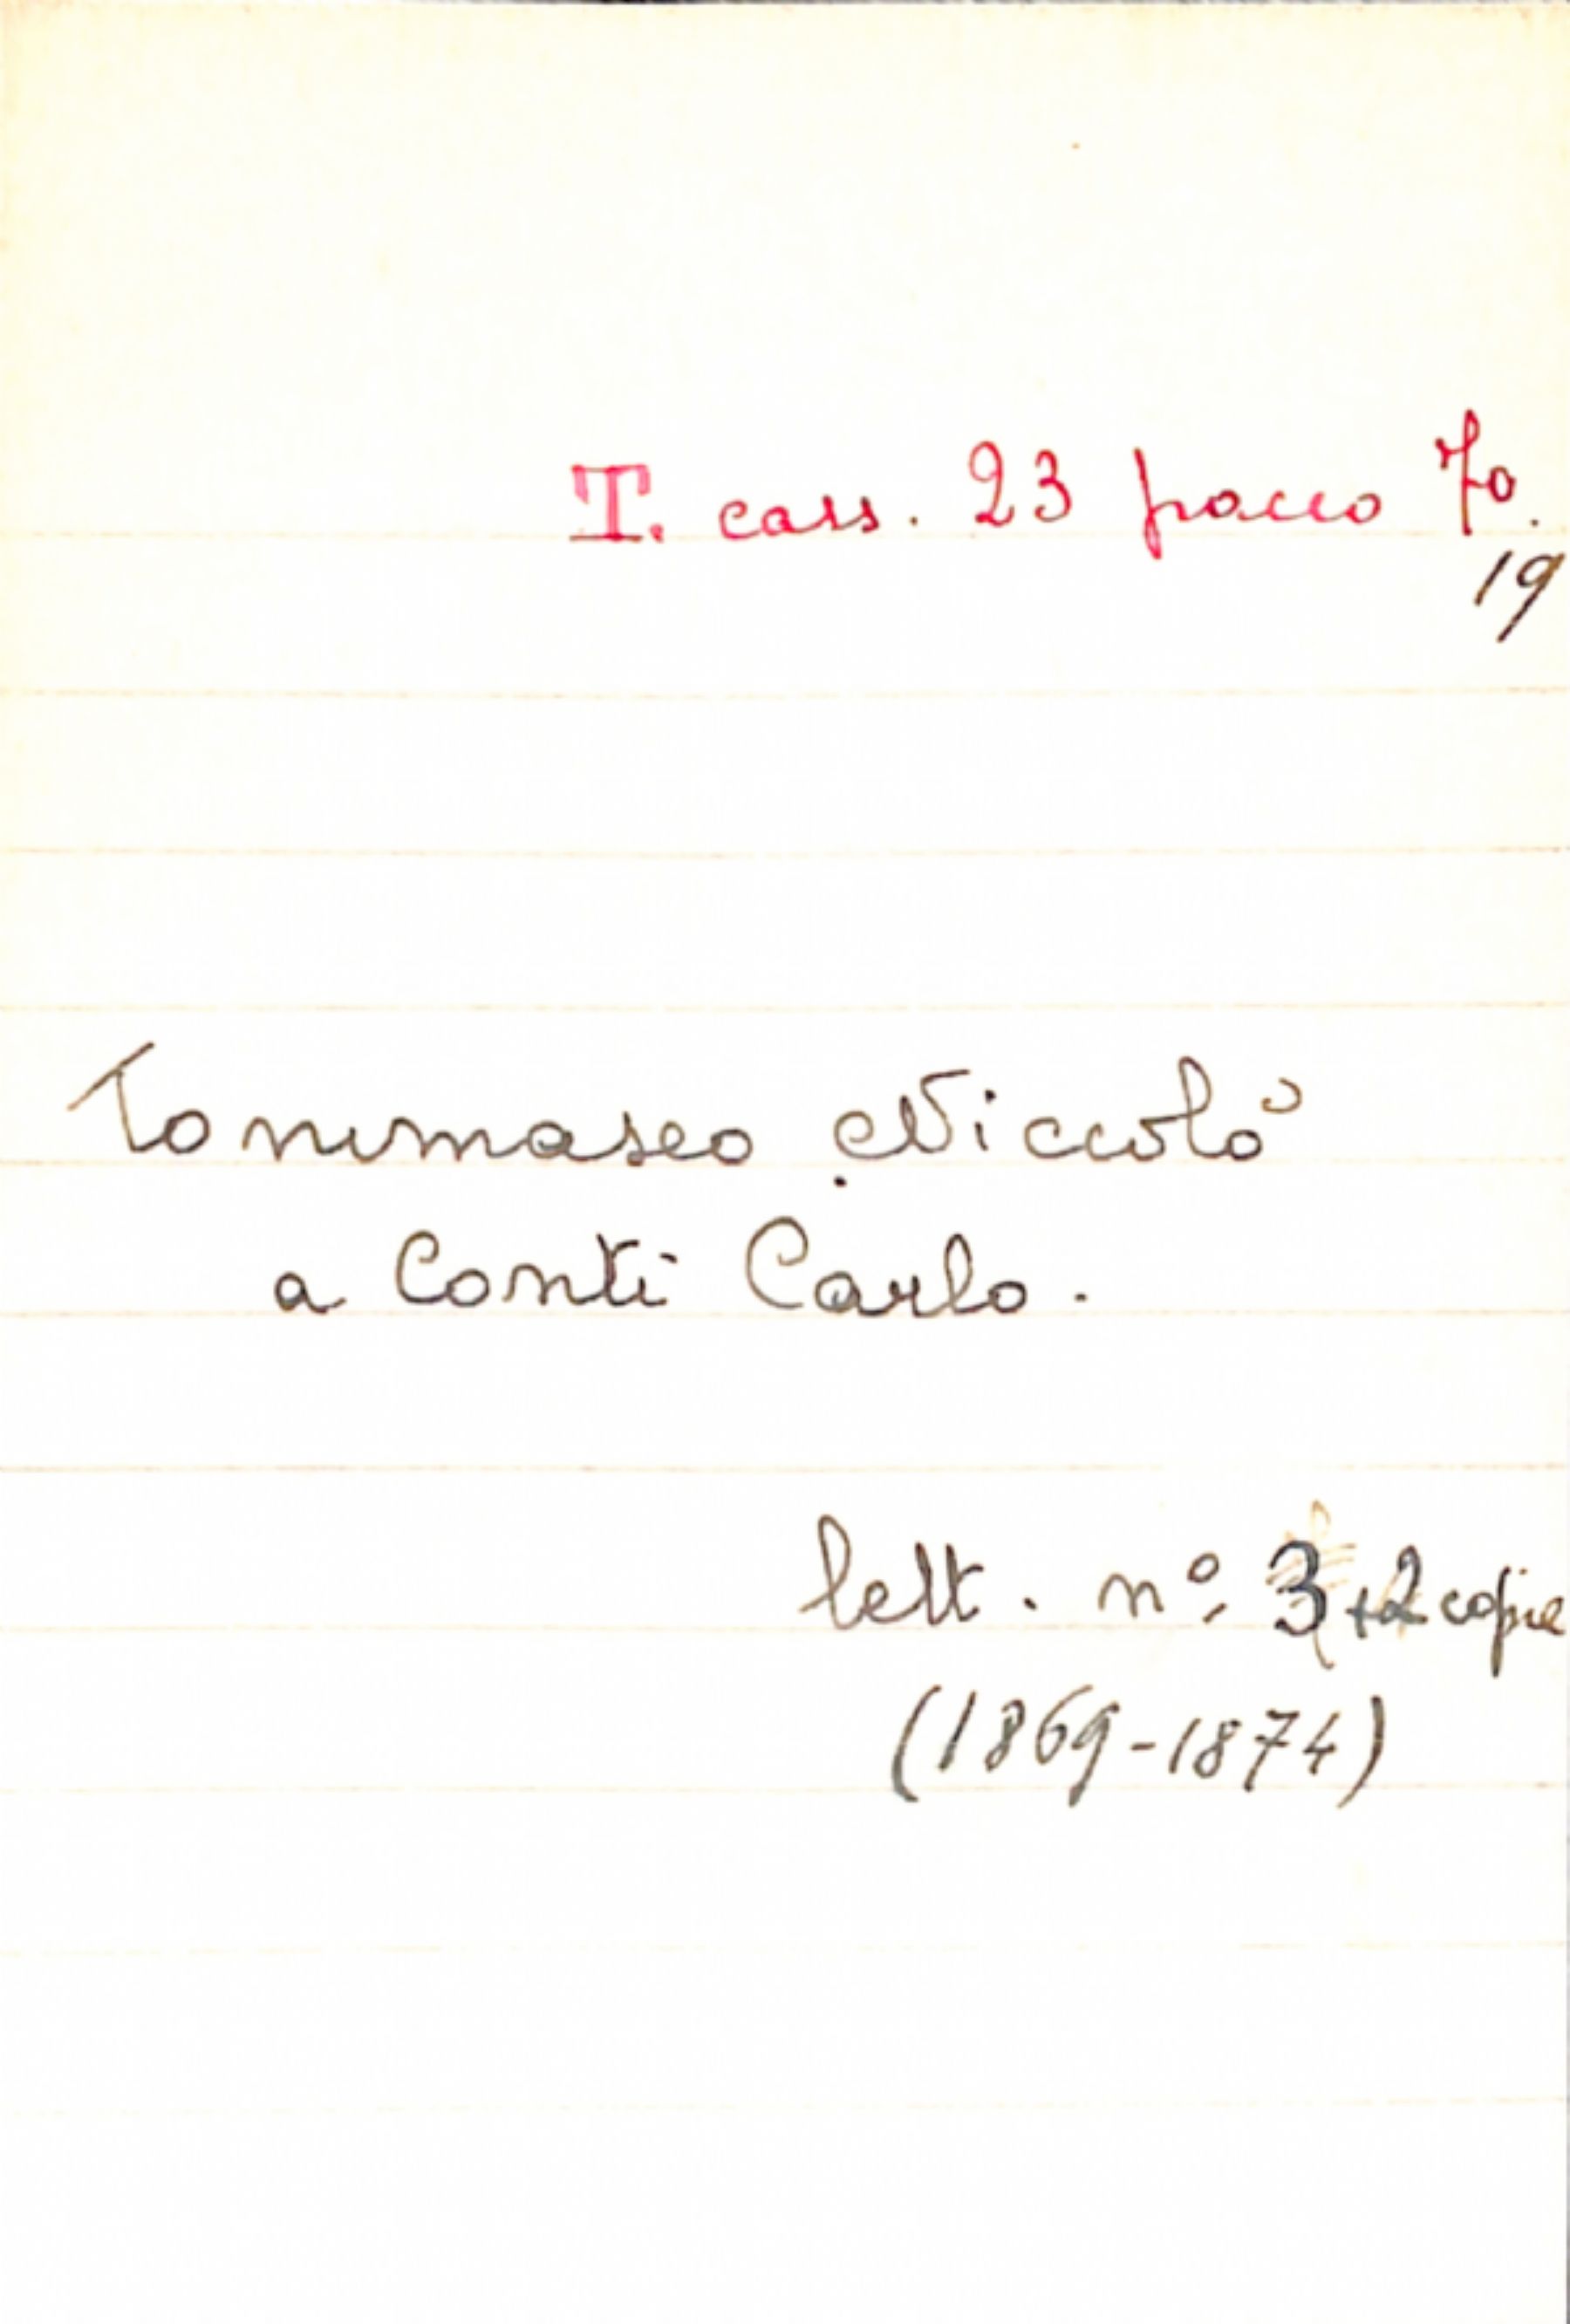 T. cass. 23 pacco 70.
19
Tommaseo Niccolò
a Conti Carlo.
lett. nº. 3 + 2 copie
(1869-1874)